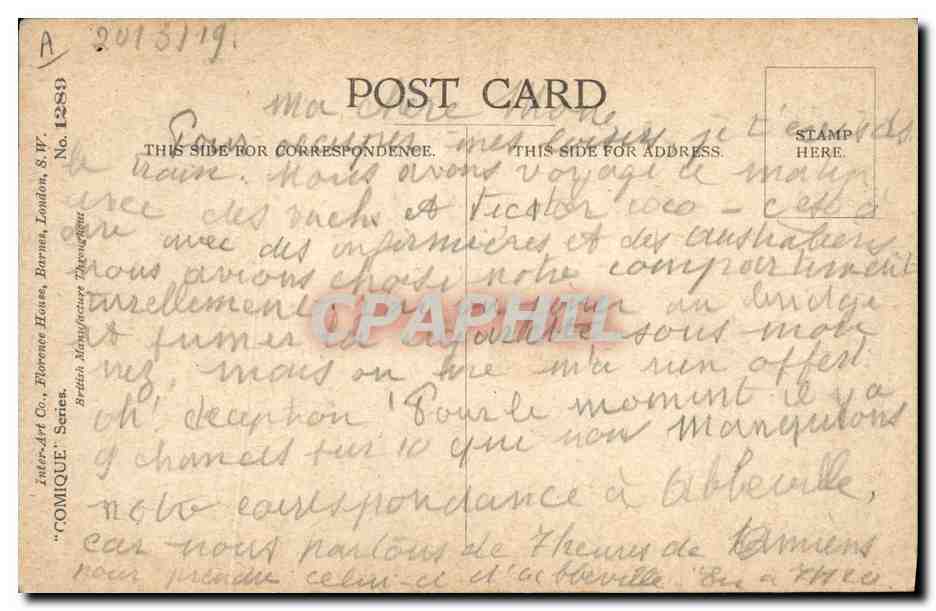 A 2013/19.
POST CARD
Ma chère
Pour occuper mes loisirs, je t'écris ds
THIS SIDE FOR CORRESPONDENCE. THIS SIDE FOR ADDRESS.
STAMP
HERE.
le train. Nous avons voyagé ce matin
avec des vachs et Victor coco – c'est à
dire avec des infirmières et des australiens
nous avions choisi notre compartiment
turellement, au bridge
et fumer la sous mon
nez, mais on ne m'a rien offert.
oh! deception! Pour le moment il y a
9 chances sur 10 que nous manquions
notre correspondance à Abbeville,
car nous partons de 7 heures de Amiens
pour prendre celui-ci d'abbeville
Inter-Art Co., Florence House, Barnes, London, S.W.
"COMIQUE" Series. No. 1289
British Manufacture Throughout
CPAPHIL